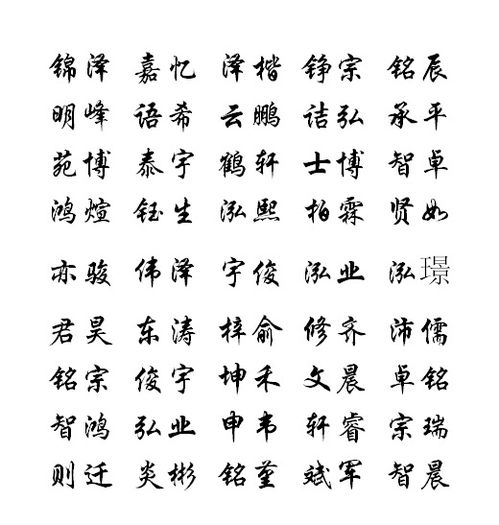 锦泽 嘉忆 泽楷 铮宗 铭辰
明峰 语希 云鹏 诘弘 承平
苑博 泰宇 鹤轩 士博 智卓
鸿煊 钰生 泓熙 柏霖 贤如
亦骏 伟泽 宇俊 泓业 泓璟
君昊 东涛 梓俞 修齐 沛儒
铭宗 俊宇 坤禾 文晨 卓铭
智鸿 弘业 申韦 轩睿 宗瑞
则迁 炎彬 铭堇 斌军 智晨